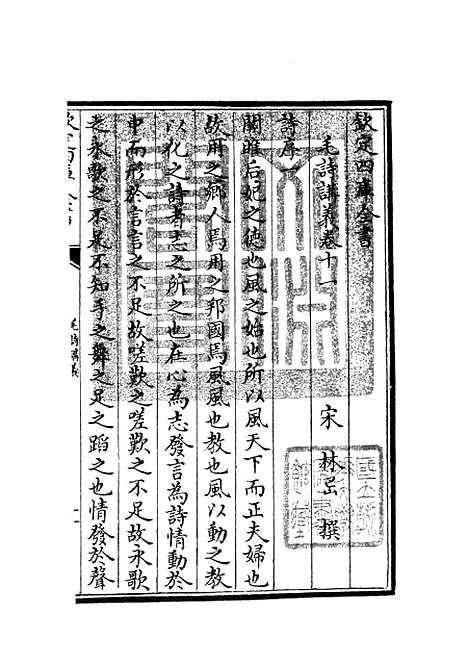 欽定四庫全書
毛詩講義卷十一
宋 林岊 撰
詩序
關雎后妃之德也風之始也所以風天下而正夫婦也
故用之鄉人焉用之邦國焉風風也教也風以動之教
以化之詩者志之所之也在心為志發言為詩情動於
中而形於言言之不足故嗟歎之嗟歎之不足故永歌
之永歌之不足不知手之舞之足之蹈之也情發於聲
毛詩講義